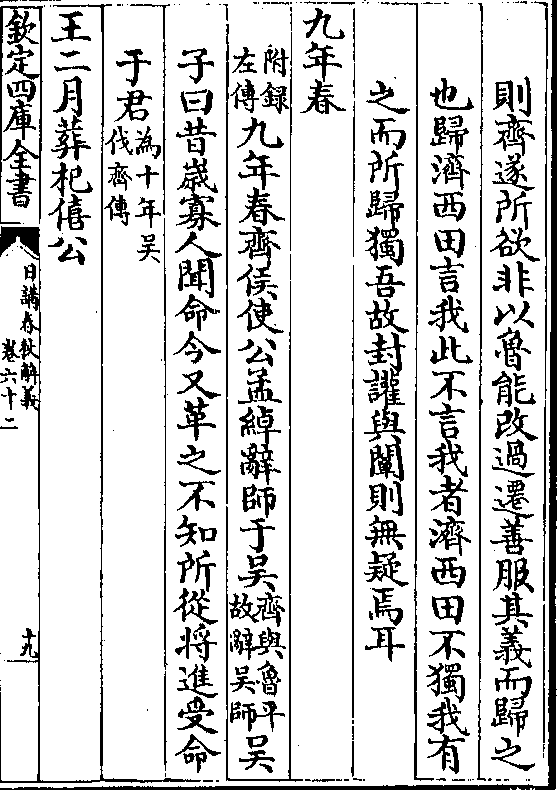 則齊遂所欲非以魯能改過遷善服其義而歸之
也歸濟西田言我此不言我者濟西田不獨我有
之而所歸獨吾故封讙與闡則無疑焉耳
九年春
附錄左傳九年春齊侯使公孟綽辭師于吳齊與魯平故辭吳師吳
子曰昔歲寡人聞命今又革之不知所從將進受命
于君為十年吳伐齊傳
王二月葬杞僖公
欽定四庫全書
日講春秋解義
卷六十二
十九